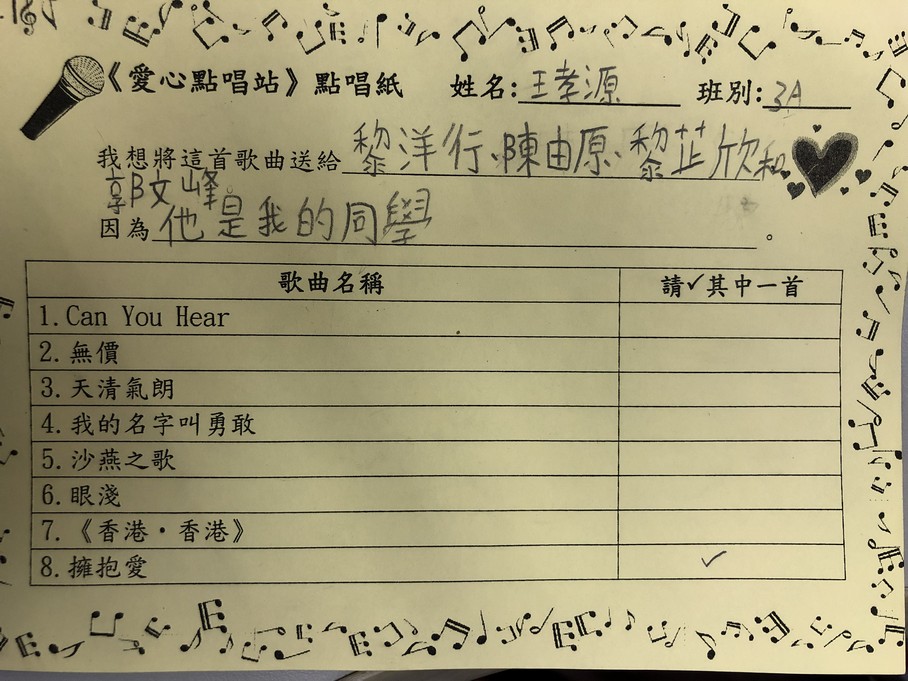 《愛心點唱站》點唱紙 姓名:王孝源 班別:3A
我想將這首歌曲送給黎洋行、陳由原、黎芷欣和
郭文峰。
因為他是我的同學。
歌曲名稱 請✓其中一首
1. Can You Hear
2. 無價
3. 天清氣朗
4. 我的名字叫勇敢
5. 沙燕之歌
6. 眼淺
7. 《香港·香港》
8. 擁抱愛 ✓